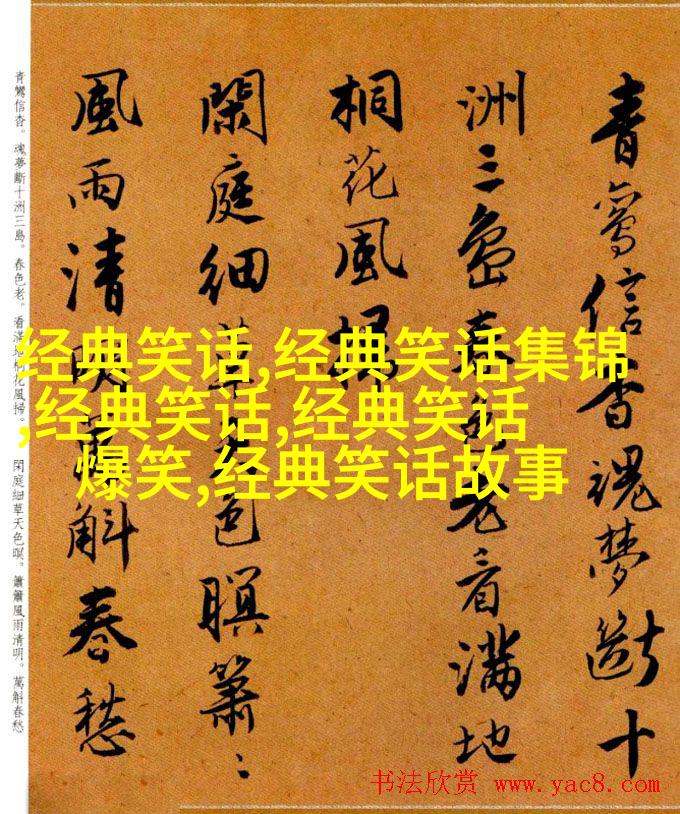 青鸞信杳魂夢斷十
洲三島春色老看滿地
桐花風掃
閑庭細草天色暝簫〻
風雨清明萬斛春愁
青鸞信杳。魂夢斷十洲三島。春色老。看滿地桐花風掃。 閑庭細草天色暝。簫簫風雨清明。萬斛春愁
,经典笑话,经典笑话集锦
,经典笑话,经典笑话
爆笑,经典笑话故事
书法欣赏 www.yac8.com